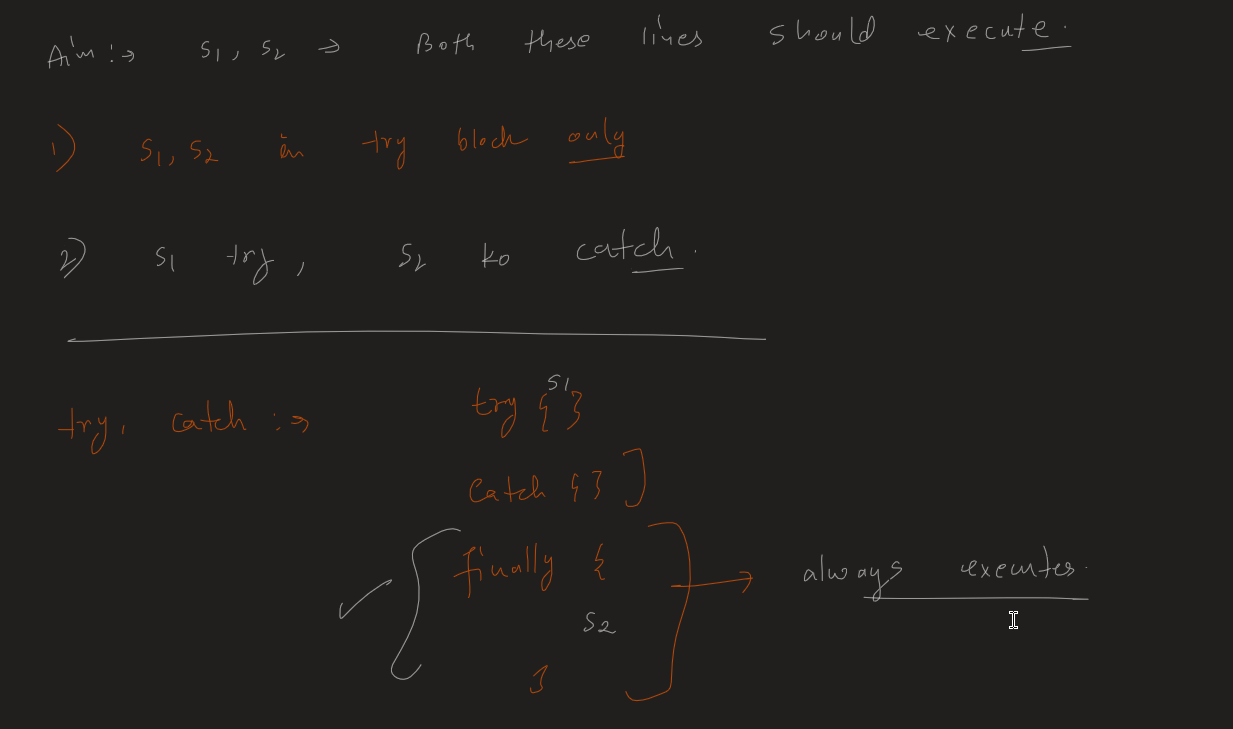 Aim :→ S1, S2 → Both these lines should execute.
1) S1, S2 in try block only
2) S1 try, S2 ko catch.
try, catch :→
try { S1 }
Catch { } ]
finally {
S2
}
always executes.